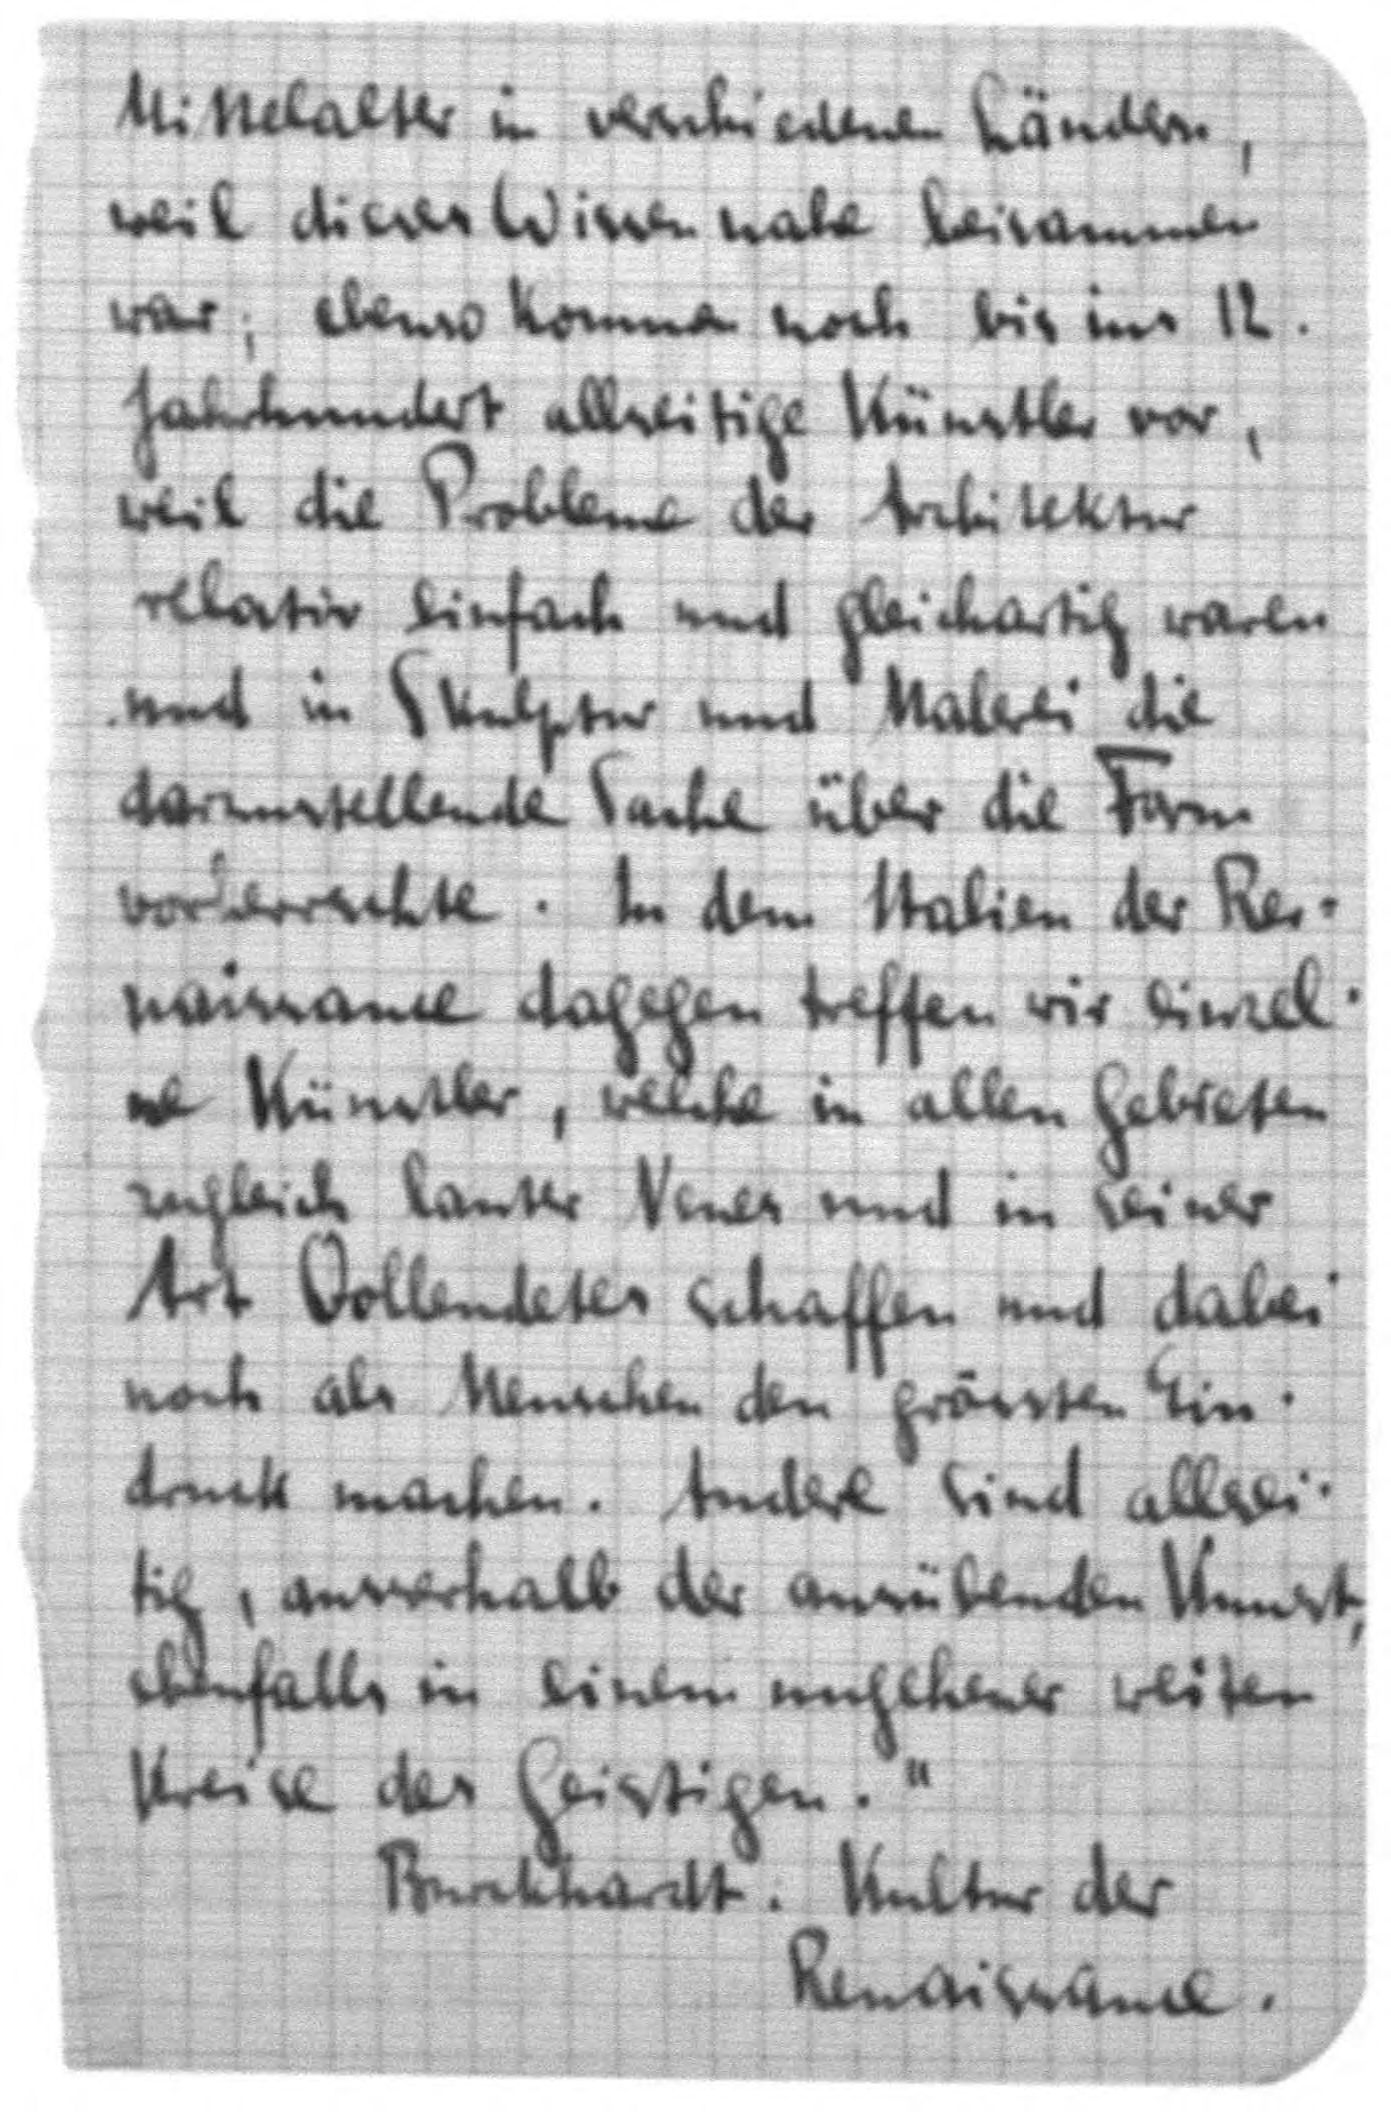 Mittelalter in verschiedenen Ländern,
weil dieses Wissen nahe beisammen
war; ebenso kommen noch bis ins 12.
Jahrhundert allseitige Künstler vor,
weil die Probleme der Architektur
relativ einfach und gleichartig waren
und in Skulptur und Malerei die
darzustellende Sache über die Form
vorherrschte. In dem Italien der Re-
naissance dagegen treffen wir einzel-
ne Künstler, welche in allen Gebieten
zugleich lauter Neues und in seiner
Art Vollendetes schaffen und dabei
noch als Menschen den grössten Ein-
druck machen. Andere sind allsei-
tig, ausserhalb der ausübenden Kunst,
ebenfalls in einem ungeheuer weiten
Kreise des Geistigen."
Burckhardt. Kultur der
Renaissance.